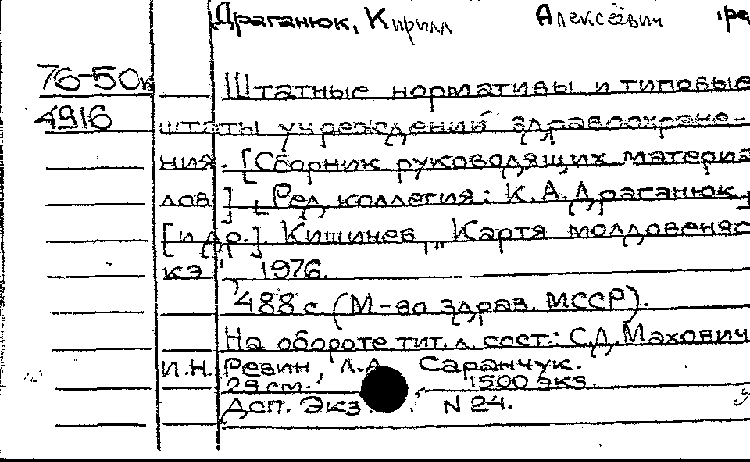 Драганюк, Кирилл Алексеевич ре
76-50к Штатные нормативы и типовые
4916 штаты учреждений здравоохране-
ния. [Сборник руководящих материа
лов]. Ред. коллегия: К.А.Драганюк
[и др.]. Кишинев, "Картя молдовеняс
кэ", 1976.
488 с (М-во здрав. МССР).
На обороте тит.л. сост.: С.Д.Махович
И.Н. Резин, Л.А. Саранчук.
29 см. 1500 экз.
Дсп. Экз N 24.